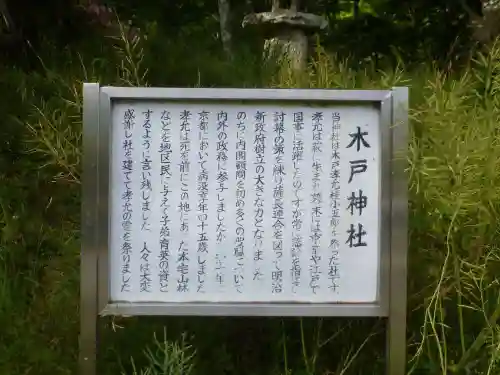 木戸神社
当神社は木戸孝允(桂小五郎)を祭った社です
孝允は萩に生まれ幕末には京都や江戸で
国事に活躍したのですが常に
討幕の策を練り薩長連合を図って明治
新政府樹立の大きな力となりました
のちに内閣顧問を初め多くの要職について
内外の政務に参与しましたが 十年
京都において病没享年四十五歳でした
孝允は死を前にこの地にあった本宅山林
などを地区民に与えて子弟育英の資と
するように言い残しました 人々は大変
感謝し社を建てて孝允の霊を祭りました